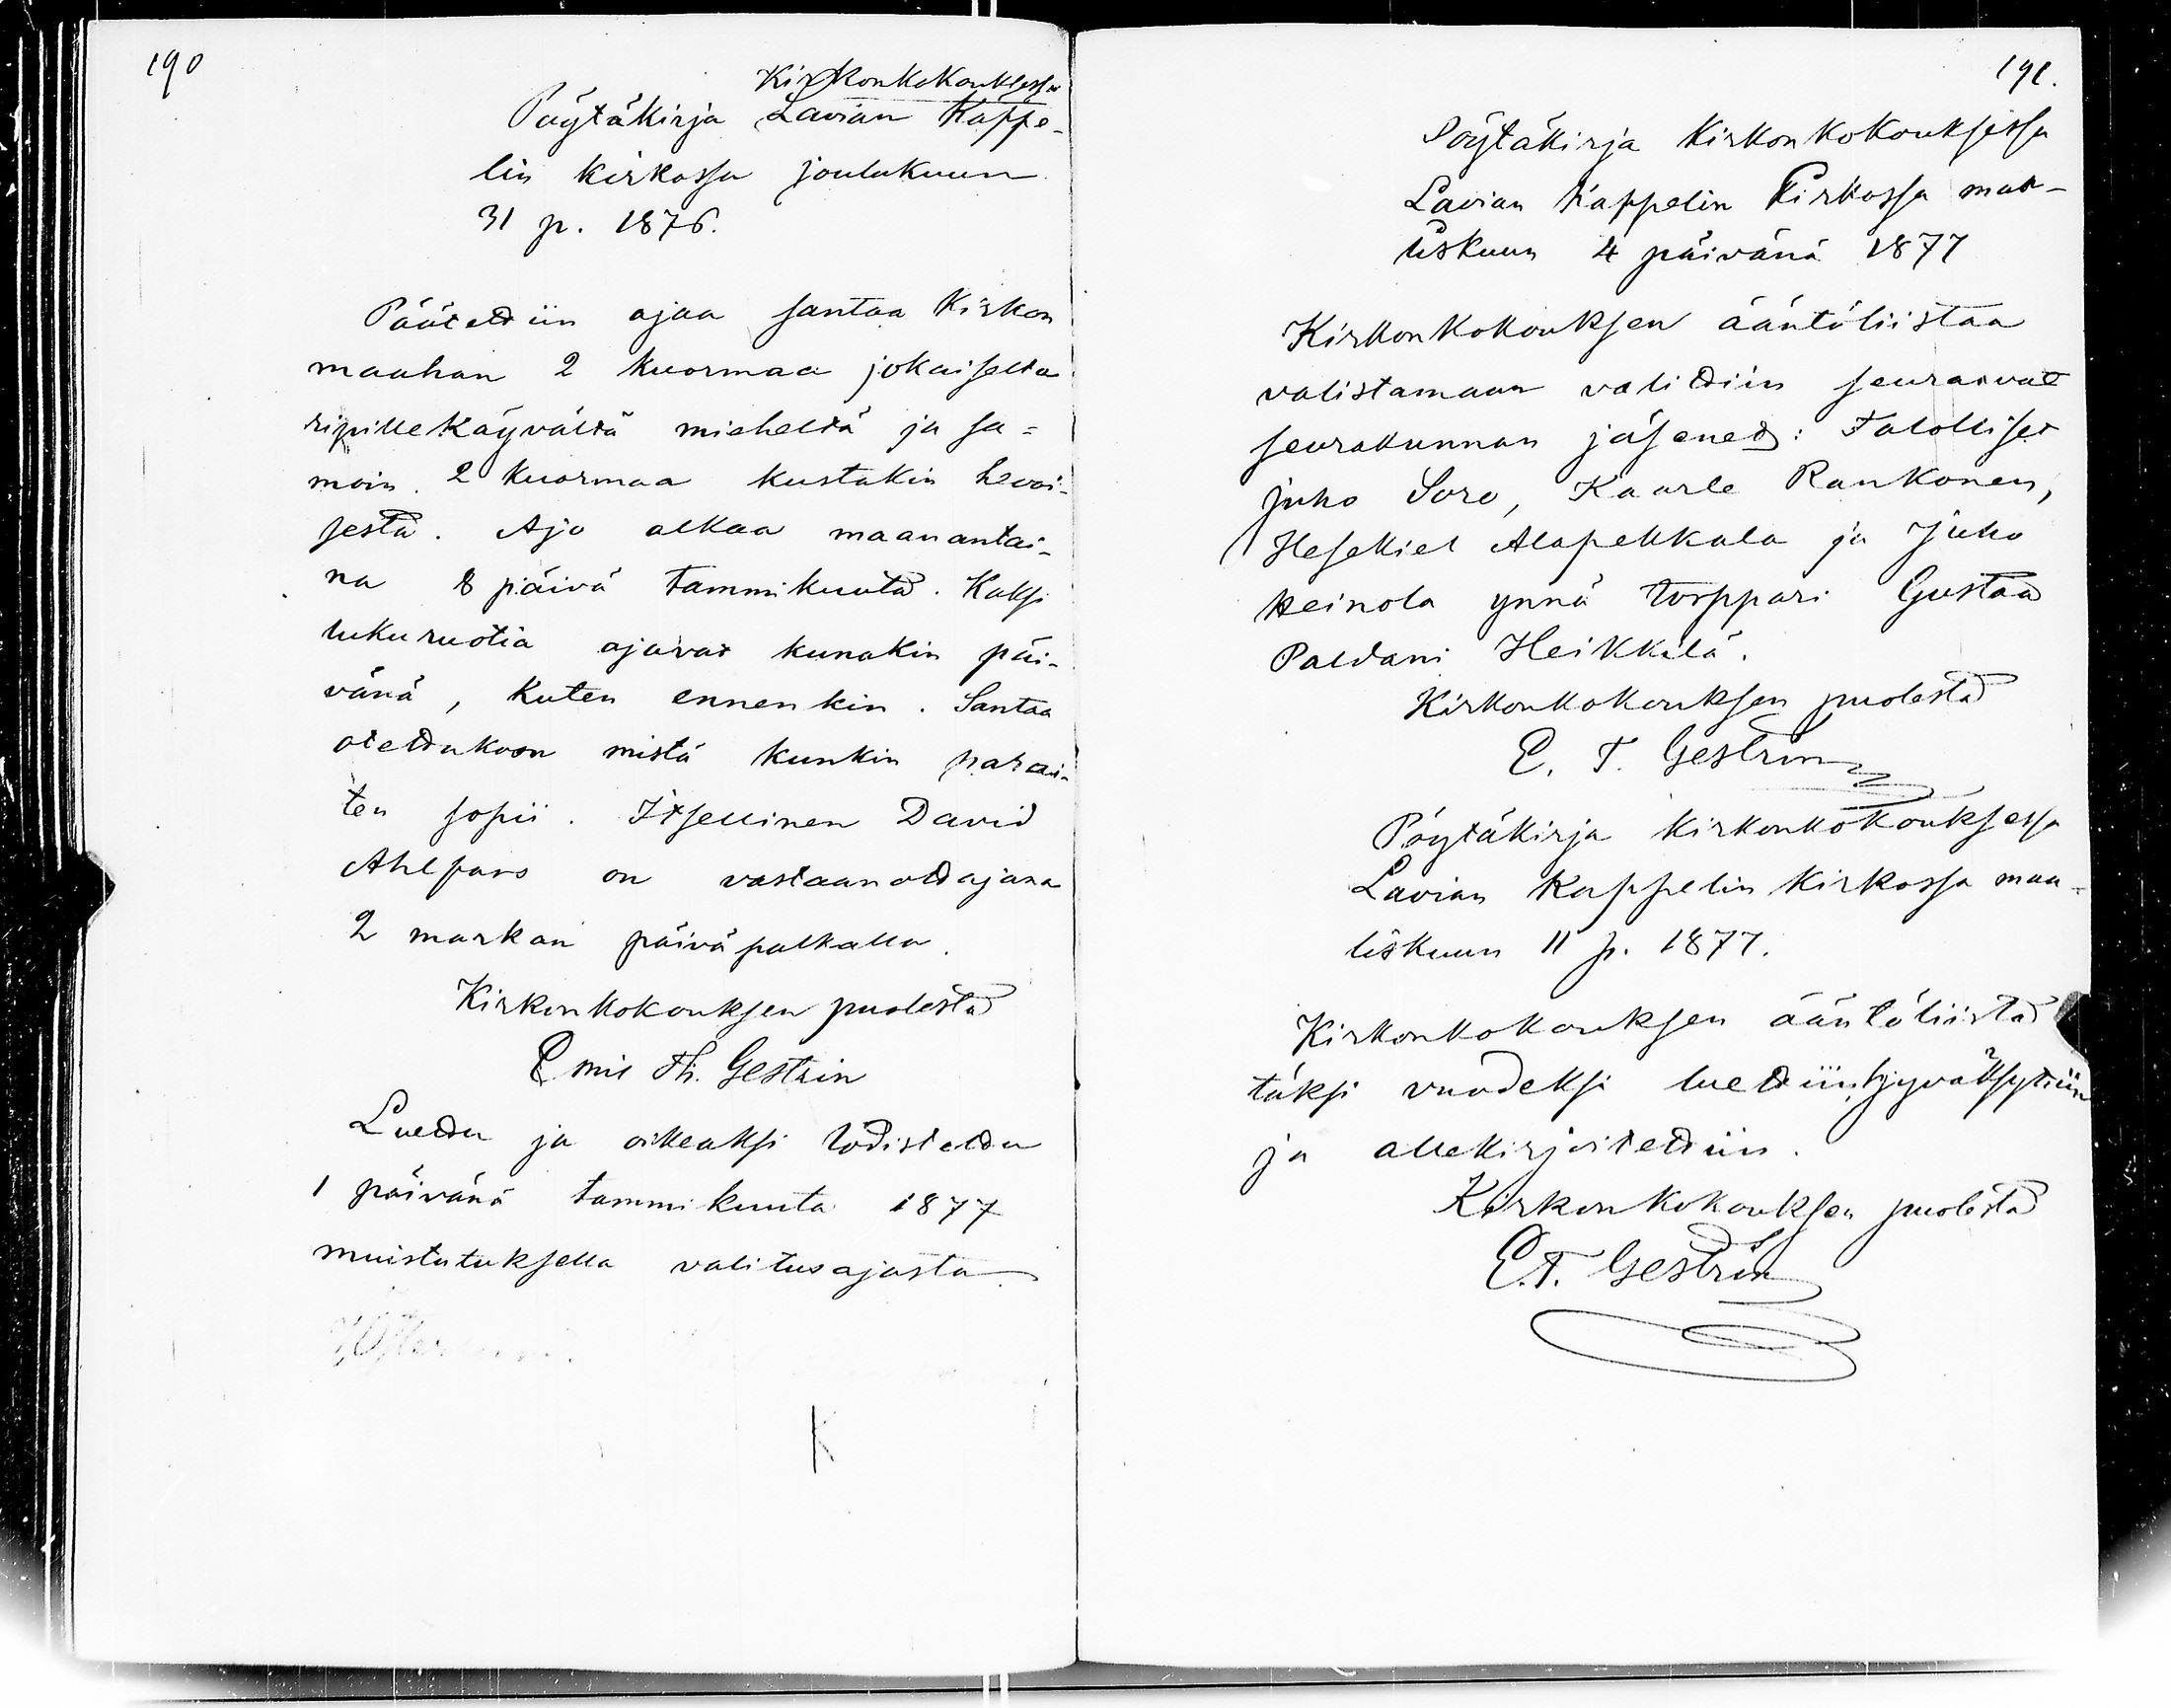 190
Kirkonkokouksessa
Pöytäkirja Lavian Kappe-
lin kirkossa joulukuun
31 p. 1876.
Päätettiin ajaa santaa Kirkon
maahan 2 kuormaa jokaiselta
ripillekäyvältä mieheltä ja sa=
moin 2 kuormaa kustakin hevoi-
sesta. Ajo alkaa maanantai-
na 8 päivä tammikuuta. Kaksi
lukuruotia ajavat kunakin päi-
vänä, kuten ennenkin. Santaa
otettakoon mistä kunkin parai-
ten sopii. Itsellinen David
Ahlfors on vastaanottajana
2 markan päiväpalkalla.
Kirkonkokouksen puolesta
Emil Th. Gestrin
Luettu ja oikeaksi todistettu
1 päivänä tammikuuta 1877
muistutuksella valitusajasta
K
191.
Pöytäkirja Kirkonkokouksessa
Lavian Kappelin Kirkossa maa-
liskuun 4 päivänä 1877
Kirkonkokouksen ääntöliistaa
valistamaan valittiin seuraavat
seurakunnan jäsenet: Talolliset
Juho Soro, Kaarle Rankonen,
Hesekiel Alapekkala ja Juho
Heinola ynnä torppari Gustaa
Paltani Heikkilä.
Kirkonkokouksen puolesta
E. T. Gestrin
Pöytäkirja Kirkonkokouksessa
Lavian Kappelin Kirkossa maa-
liskuun 11 p. 1877.
Kirkonkokouksen ääntöliista
täksi vuodeksi luettiin, hyväksyttiin
ja allekirjoitettiin.
Kirkonkokouksen puolesta
E.T. Gestrin